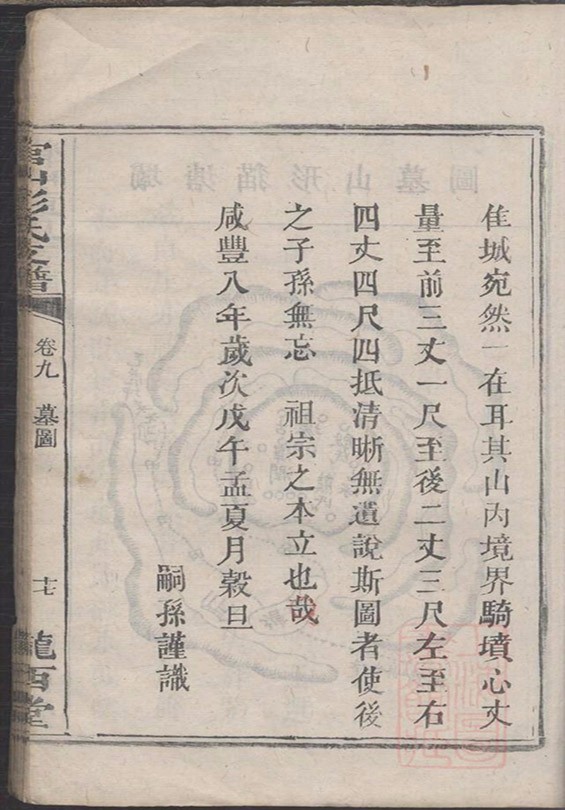 佳城宛然一在耳其山內境界騎墳心丈
量至前三丈一尺至後二丈三尺左至右
四丈四尺四抵清晰無遺說斯圖者使後
之子孫無忘　祖宗之本立也哉
咸豐八年歲次戊午孟夏月穀旦
嗣孫謹識
彭氏支譜
卷九　墓圖
十七
隴西堂